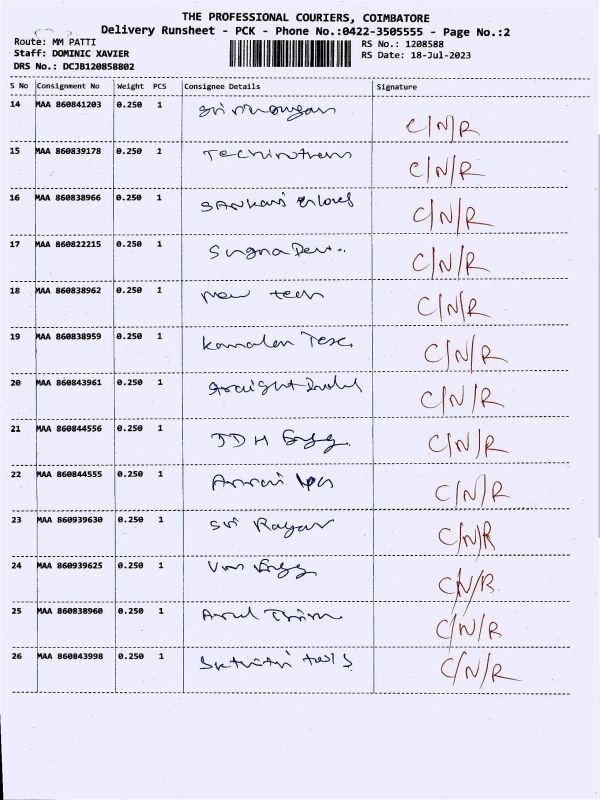 THE PROFESSIONAL COURIERS, COIMBATORE
Delivery Runsheet - PCK - Phone No.:0422-3505555 - Page No.:2
Route: MM PATTI
RS No.: 1208588
Staff: DOMINIC XAVIER
RS Date: 18-Jul-2023
DRS No.: DCJB120858802
S No Consignment No Weight PCS Consignee Details Signature
14 MAA 860841203 0.250 1 C/N/R
15 MAA 860839178 0.250 1 C/N/R
16 MAA 860838966 0.250 1 C/N/R
17 MAA 860822215 0.250 1 Suguna C/N/R
18 MAA 860838962 0.250 1 New tech C/N/R
19 MAA 860838959 0.250 1 C/N/R
20 MAA 860843961 0.250 1 C/N/R
21 MAA 860844556 0.250 1 JDH Engg. C/N/R
22 MAA 860844555 0.250 1 C/N/R
23 MAA 860939630 0.250 1 Sri C/N/R
24 MAA 860939625 0.250 1 Engg C/N/R
25 MAA 860838960 0.250 1 Arul C/N/R
26 MAA 860843998 0.250 1 C/N/R